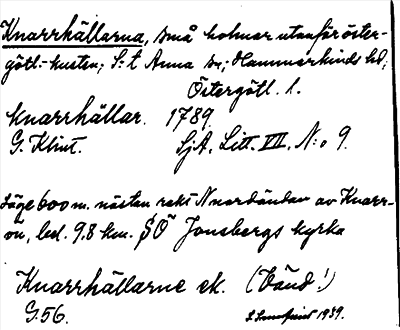 Knarrhällarna, små holmar utanför öster-
götl.-kusten; S:t Anna sn; Hammarkinds hd;
Östergötl. l.
Knarrhällar. 1789.
G. Klint. SjA. Litt. VII, N:o 9.
Läge 600 m. nästan rakt N nordändan av Knarr-
ön, bel. 9.8 km. SÖ Jonsbergs kyrka
Knarrhällarne ek. (Vänd!)
G.56. 1939.